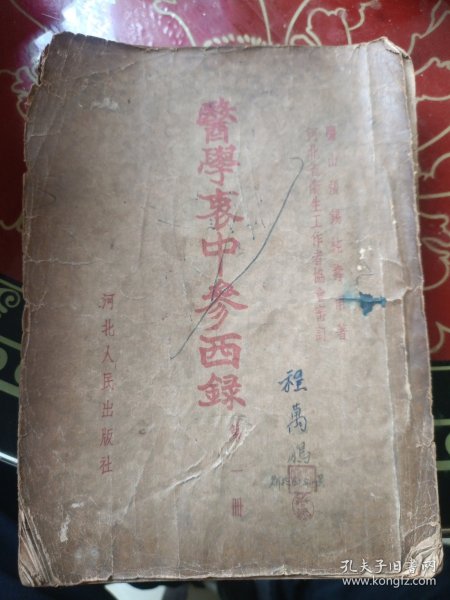 鹽山張錫純壽甫著
河北省衛生工作者協會審訂
醫學衷中參西録
第一冊
河北人民出版社
程萬鵬
孔夫子旧书网
www.kongfz.com